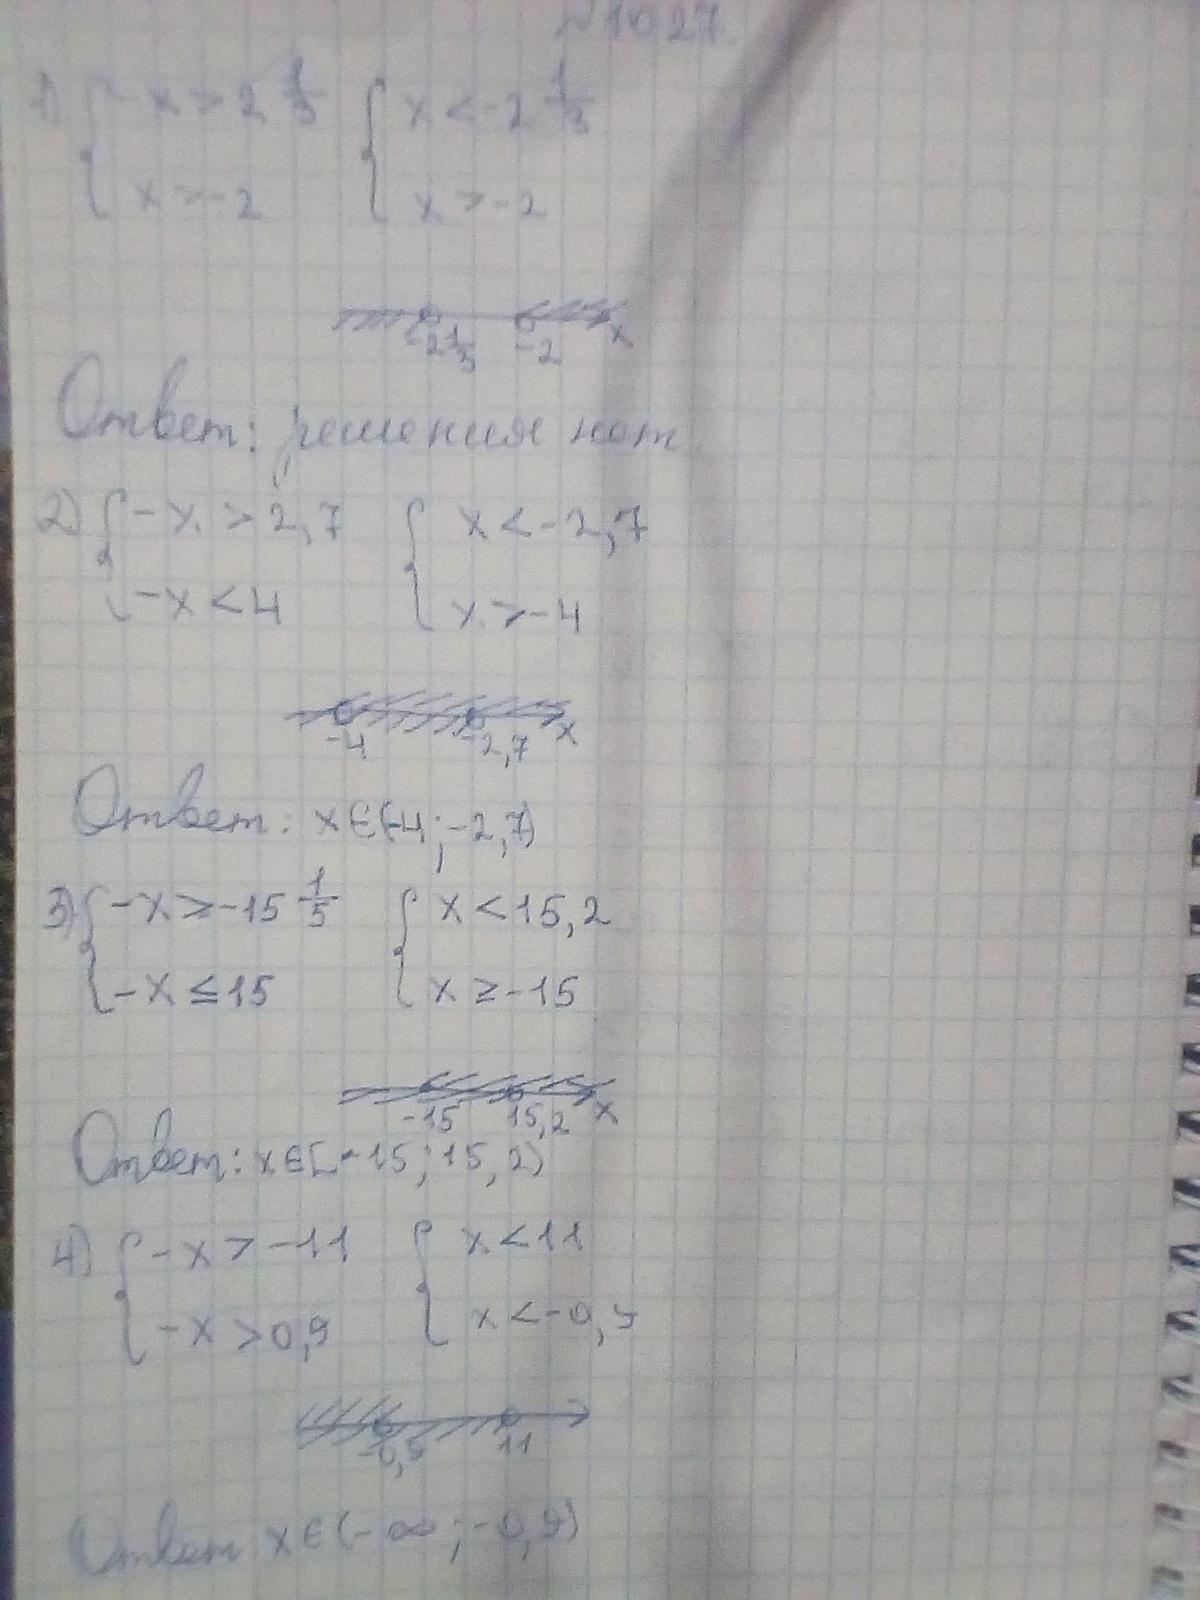 №1027
1) { -x > 2 1/3 { x < -2 1/3
x > -2 x > -2
-2 1/3 -2 x
Ответ: решения нет
2) { -x > 2,7 { x < -2,7
-x < 4 x > -4
-4 -2,7 x
Ответ: x∈(-4; -2,7)
3) { -x > -15 1/5 { x < 15,2
-x ≤ 15 x ≥ -15
-15 15,2 x
Ответ: x∈[-15; 15,2)
4) { -x > -11 { x < 11
-x > 0,9 x < -0,9
-0,9 11
Ответ: x∈(-∞; -0,9)